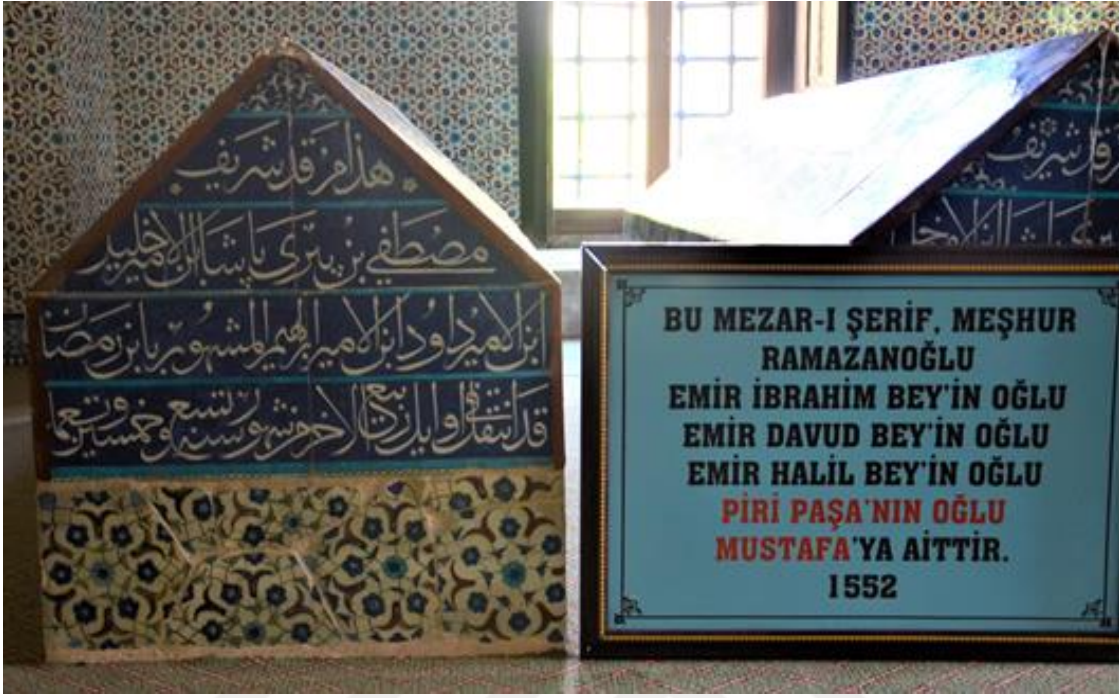 هذا مرقد شريف
مصطفى بن پيرى پاشا ابن الامير خليل
ابن الامير داود ابن الامير ابرهيم المشهور بابن رمضان
قد انتقل في اوايل ربيع الاخر من شهور سنه تسع وخمسين وتسعما
رقد شريف
پاشا ابن الامير
BU MEZAR-I ŞERİF, MEŞHUR
RAMAZANOĞLU
EMİR İBRAHİM BEY'İN OĞLU
EMİR DAVUD BEY'İN OĞLU
EMİR HALİL BEY'İN OĞLU
PİRİ PAŞA'NIN OĞLU
MUSTAFA'YA AİTTİR.
1552